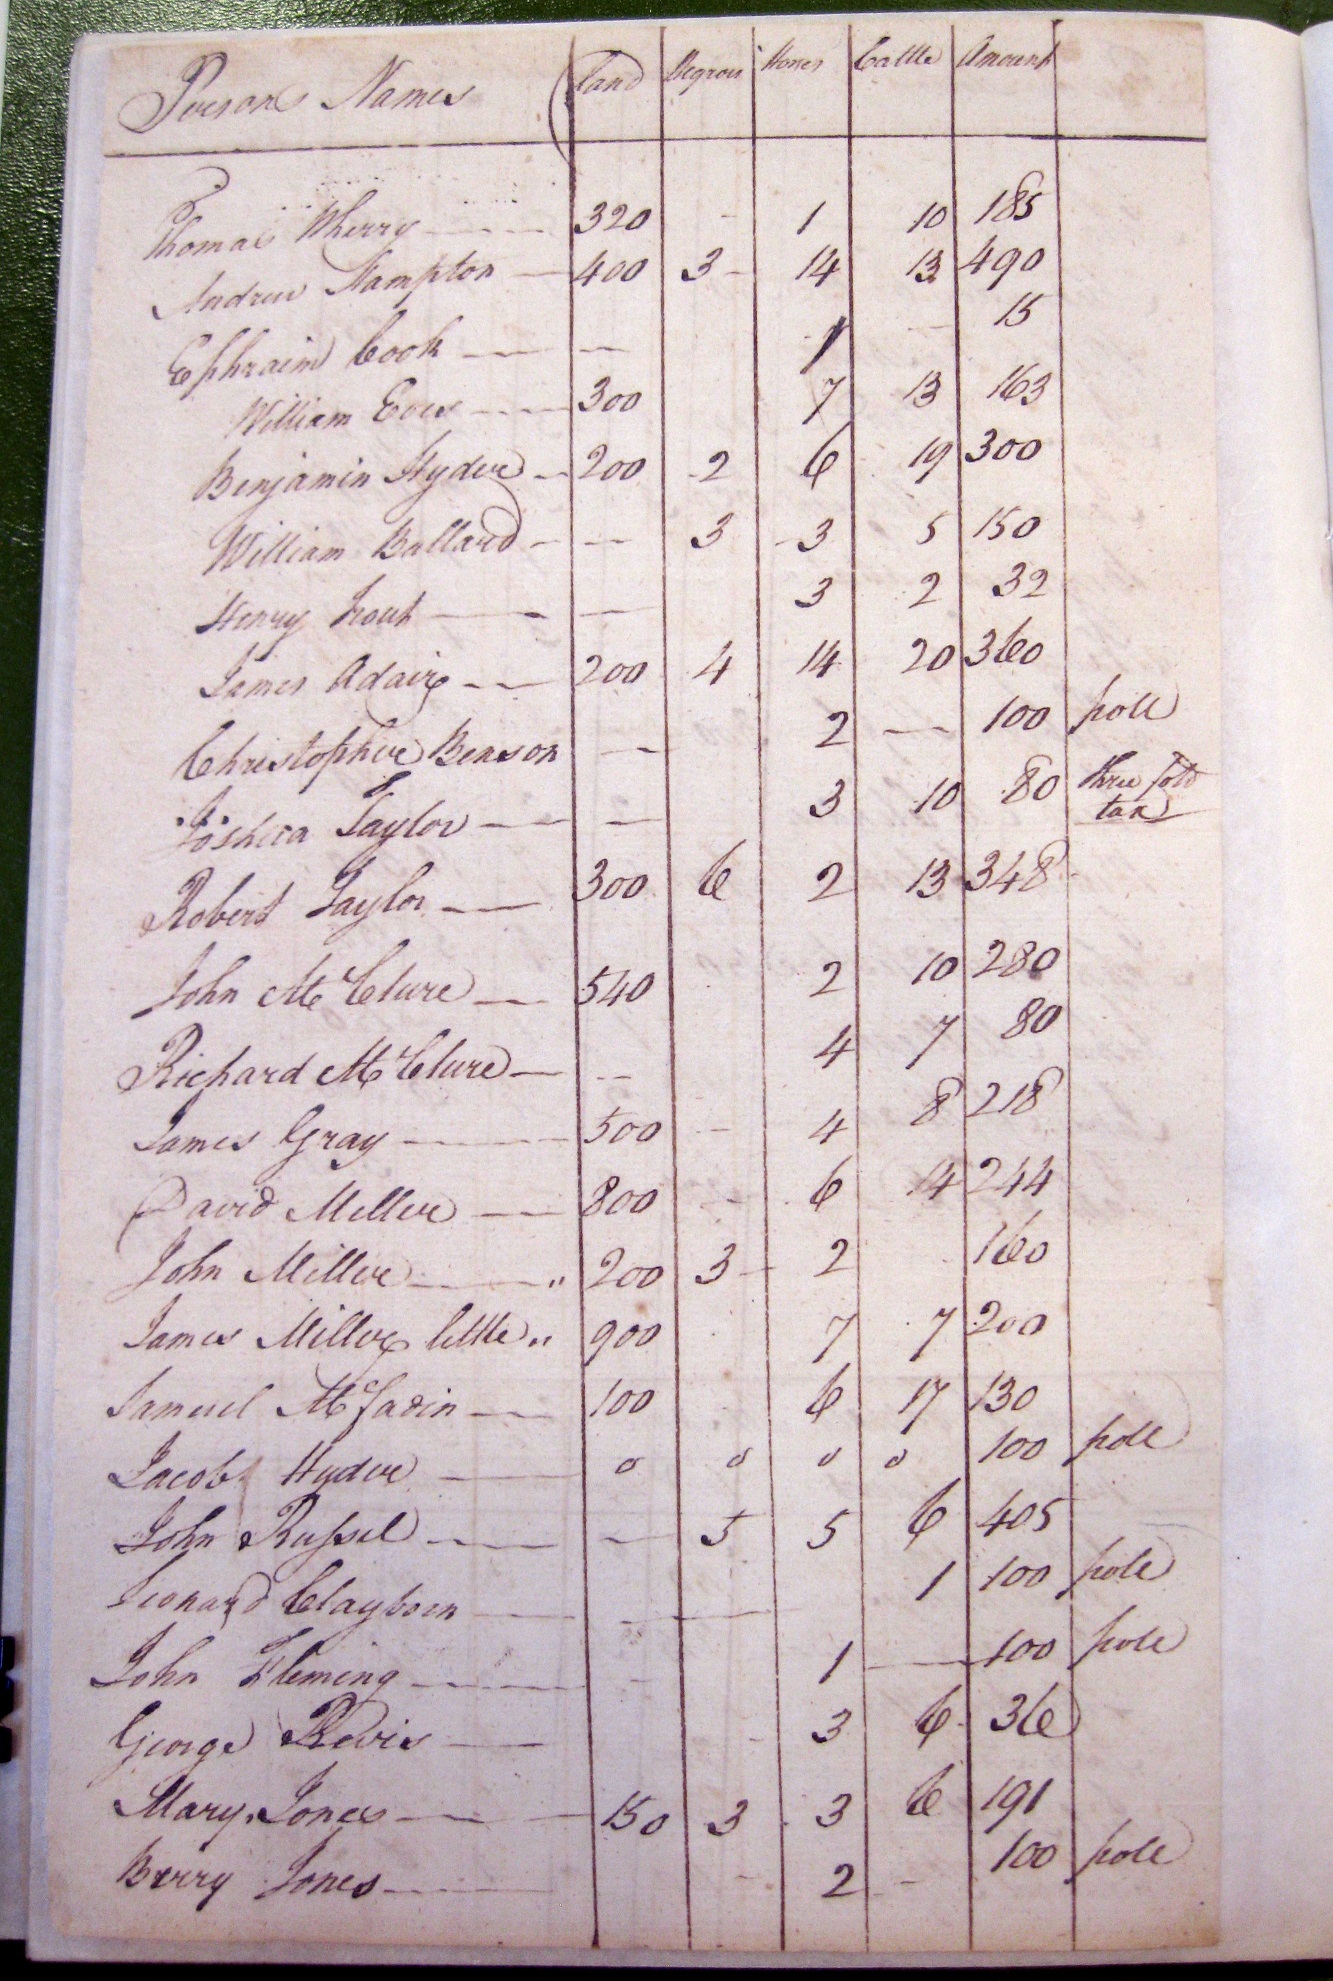 Persons Names Land Negroes Horses Cattle Amount
Thomas Wherry 320 - 1 10 185
Andrew Hampton 400 3 14 13 490
Ephraim Cook — 1 — 15
William Eves 300 7 13 163
Benjamin Hyder 200 2 6 19 300
William Ballard — 3 3 5 150
Henry Trout — 3 2 32
James Adair 200 4 14 20 360
Christopher Benson — 2 — 100 poll
Joshua Taylor — 3 10 80 three fold
tax
Robert Taylor 300 6 2 13 348
John McClure 540 2 10 280
Richard McClure -- 4 7 80
James Gray 500 - 4 8 218
David Miller 800 - 6 14 244
John Miller " 200 3 2 160
James Miller little " 900 7 7 200
Samuel McFadin 100 6 17 130
Jacob Hyder 0 0 0 0 100 poll
John Russel — 5 5 6 405
Leonard Clayborn — 1 100 poll
John Fleming - 1 — 100 poll
George Revis - 3 6 36
Mary Jones 150 3 3 6 191
Berry Jones - 2 - 100 poll